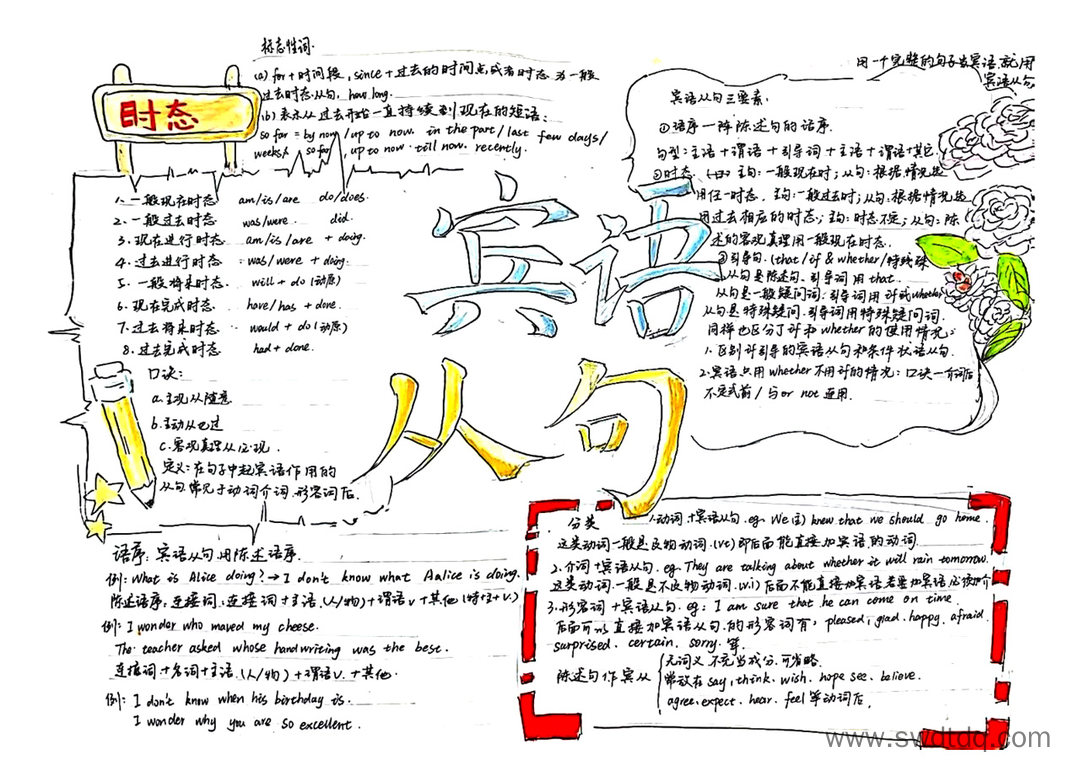 标志性词.
(a) for+时间段, since+过去的时间点或者时态为一般
过去时态从句, how long.
(b) 表示从过去开始一直持续到现在的短语:
so far = by now / up to now. in the part / last few days /
weeks/ so far , up to now. till now. recently.
时态
1. 一般现在时态 am/is/are do/does.
2. 一般过去时态 was/were. did.
3. 现在进行时态 am/is/are + doing.
4. 过去进行时态 was/were + doing.
5. 一般将来时态 will + do (动原)
6. 现在完成时态 have/has + done.
7. 过去将来时态 would + do (动原)
8. 过去完成时态 had + done.
口诀:
a. 主现从随意
b. 主动从必过
c. 客观真理从必现.
定义: 在句子中起宾语作用的
从句常见于动词介词形容词后.
宾语
从句
用一个完整的句子当宾语就用
宾语从句
宾语从句三要素:
①语序一阵陈述句的语序.
句型: 主语+谓语+引导词+主语+谓语+其它.
②时态. 主句: 一般现在时; 从句: 根据情况选
用任一时态. 主句: 一般过去时; 从句根据情况选
用过去相应的时态; 主句: 时态不定; 从句: 陈
述的客观真理用一般现在时态.
③引导句. (that/if & whether/特殊
从句是陈述句. 引导词用 that.
从句是一般疑问词: 引导词用 if 或 whether
从句是特殊疑问. 引导词用特殊疑问词.
同样也区分了 if 和 whether 的使用情况:
1. 区别 if 引导的宾语从句和条件状语从句.
2. 宾语只用 whether 不用 if 的情况: 口诀一介词后
不定式前 / 与 or not 连用.
语序: 宾语从句用陈述语序.
例: What is Alice doing? → I don't know what Aalice is doing.
陈述语序: 连接词: 连接词+主语.(人/物)+谓语v+其他 (特+主+v.)
例: I wonder who maved my cheese.
The teacher asked whose handwriting was the best.
连接词+名词+主语.(人/物)+谓语v.+其他.
例: I don't know when his birthday is.
I wonder why you are so excellent.
分类 1.动词+宾语从句. eg. We (主) knew that we should go home.
这类动词一般是及物动词. (vt) 即后面能直接加宾语的动词.
2. 介词+宾语从句. eg. They are talking about whether it will rain tomorrow.
这类动词一般是不及物动词. (vi) 后面不能直接加宾语若要加宾语必须加介
3. 形容词+宾语从句. eg: I am sure that he can come on time.
后面可以直接加宾语从句的形容词有, pleased, glad. happy. afraid.
surprised. certain. sorry. 等.
陈述句作宾从
无词义. 不充当成分. 可省略.
常放在 say, think. wish. hope see. believe.
agree. expect. hear. feel 等动词后.
www.swdtdq.com